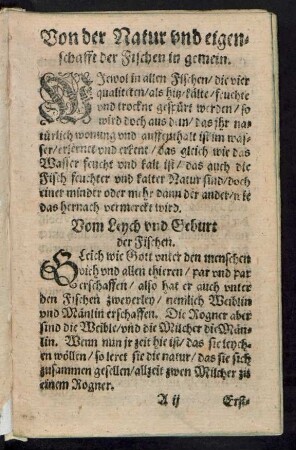 Von der Natur vnd eigen-
schafft der Fischen in gemein.
WJewol in allen Fischen/ die vier
qualiteten/ als hitz/ kälte/ feuchte
vnd trockne gespürt werden/ so
wird doch aus dem/ das ihr na
türlich wonung vnd auffenthalt ist im was
ser/ erlernet vnd erkent/ das gleich wie das
Wasser feucht vnd kalt ist/ das auch die
Fisch feuchter vnd kalter Natur sind/ doch
einer minder oder mehr dann der ander/
das hernach vermerckt wird.
Vom Leych vnd Geburt
der Fischen.
GLeich wie Gott vnter den menschen
vich vnd allen thieren/ par vnd par
erschaffen/ also hat er auch vnter
den Fischen zweyerley/ nemlich Weiblin
vnd Mänlin erschaffen. Die Rogner aber
sind die Weible/ vnd die Milcher die Män-
lin. Wenn nun jr zeit hie ist/ das sie leych-
en wöllen/ so leret sie die natur/ das sie sich
zusammen gesellen/ allzeit zwen Milcher zu
einem Rogner.
A ij Erst-